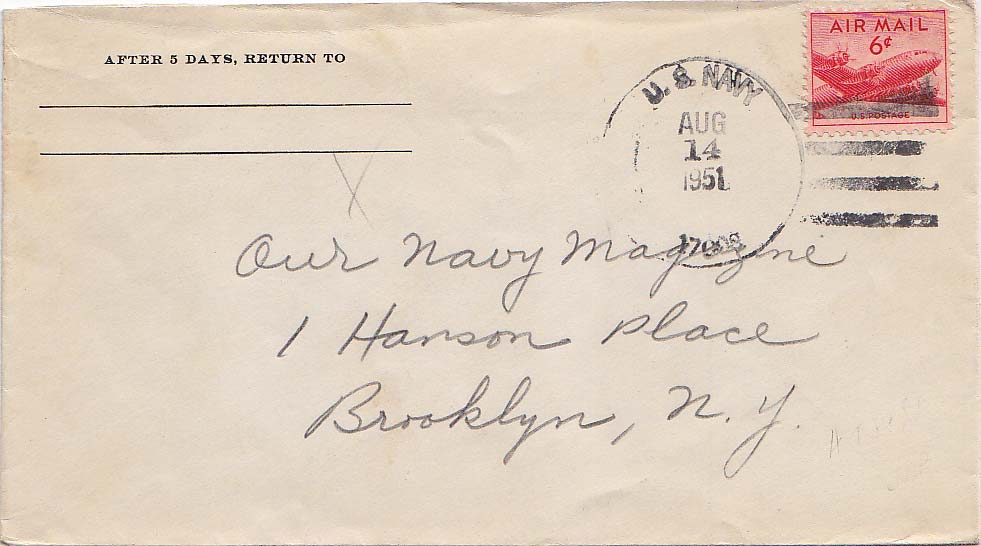 AFTER 5 DAYS, RETURN TO
AIR MAIL
6¢
U.S. POSTAGE
U. S. NAVY
AUG
14
1951
Our Navy Magazine
1 Hanson Place
Brooklyn, N. Y.